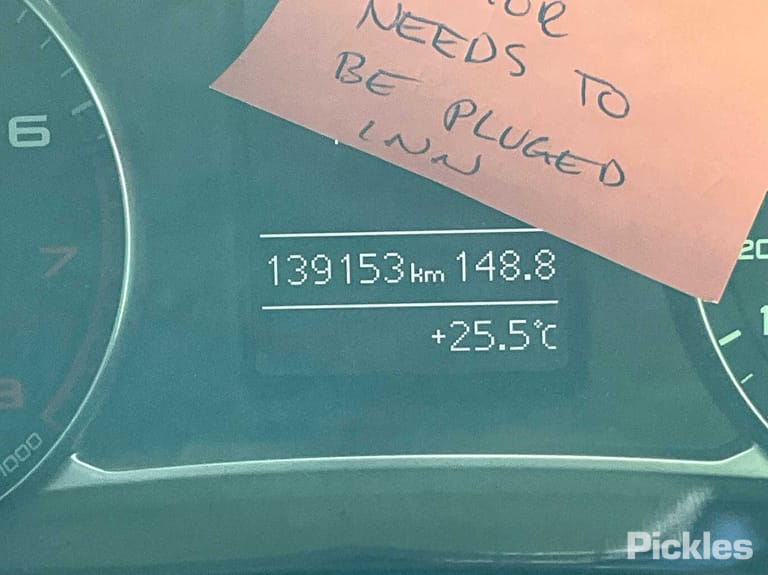 NEEDS TO
BE PLUGED
INN
6
7
8
1000
139153 km 148.8
+25.5°C
20
Pickles